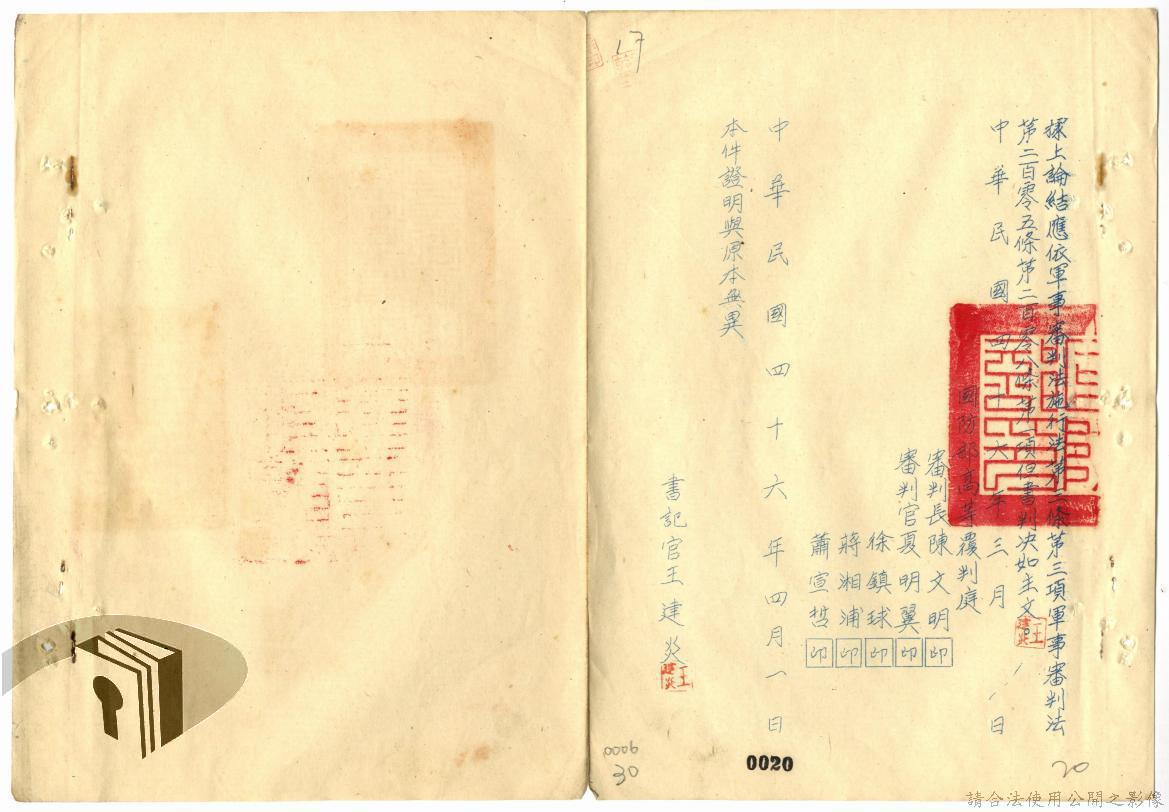 據上論結應依軍事審判法施行法第三條第三項軍事審判法
第二百零五條第二百零八條第一項但書判決如主文
中華民國四十六年三月 日
國防部高等覆判庭
審判長陳文明印
審判官夏明翼印
徐鎮球印
蔣湘浦印
蕭宣哲印
中華民國四十六年四月一日
本件證明與原本無異
書記官王建炎
王建炎
王建炎
17
0006
30
0020
20
請合法使用公開之影像